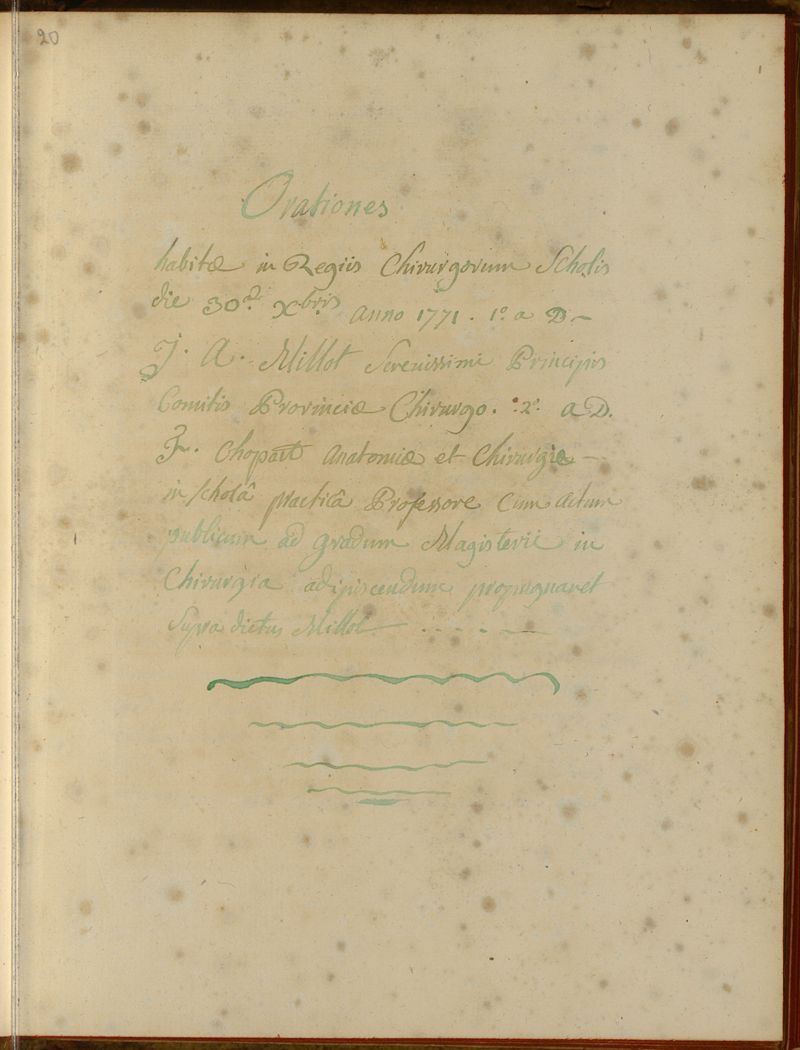 20
Orationes
habitæ in Regiis Chirurgorum Scholis
die 30ª. Xbris anno 1771. 1º. a D-
J. A. Millot Serenissimi Principis
Comitis Provinciæ Chirurgo. 2º. a D.
F. Chopart Anatomiæ et Chirurgiæ -
in scholâ practicâ Professore Cum actum
publicum ad gradum Magisterii in
Chirurgia adipiscendum propugnaret
Supra dictus Millot